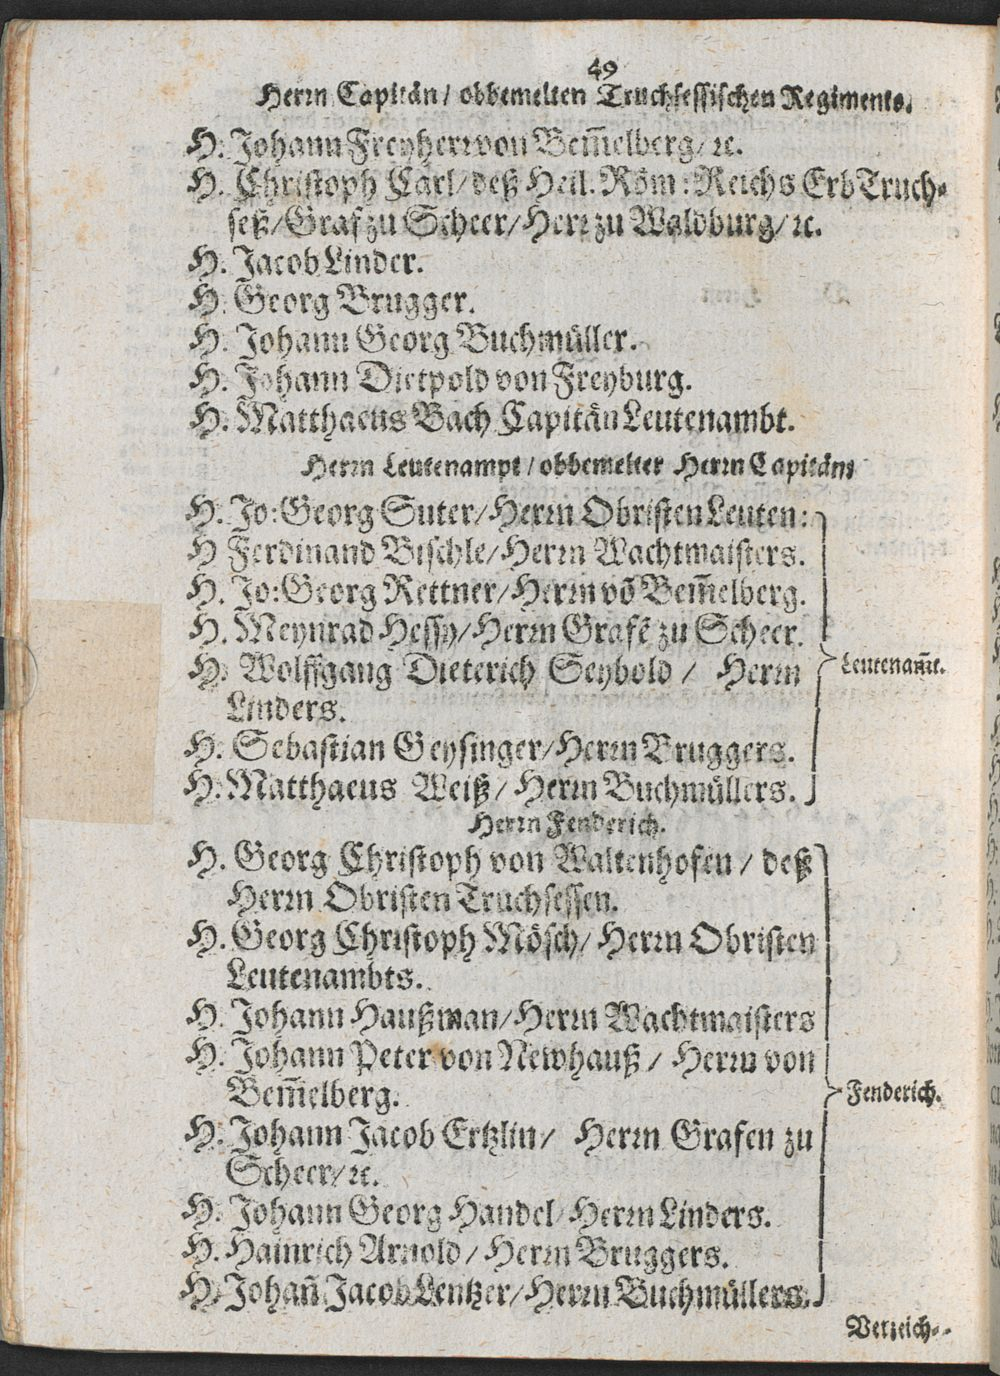 49
Herrn Capitän / obbemelten Truchsessischen Regiments.
H. Johann Freyherr von Bem̃elberg / ꝛc.
H. Christoph Carl / deß Heil. Röm: Reichs ErbTruch-
seß / Graf zu Scheer / Herr zu Waldburg / ꝛc.
H. Jacob Linder.
H. Georg Brugger.
H. Johann Georg Buchmüller.
H. Johann Dietpold von Freyburg.
H. Matthaeus Bach Capitän Leutenambt.
Herrn Leutenampt / obbemelter Herrn Capitäns
H. Jo: Georg Suter / Herrn Obristen Leuten:
H Ferdinand Bischle / Herrn Wachtmaisters.
H. Jo: Georg Rettner / Herrn võ Bem̃elberg.
H. Meynrad Hessy / Herrn Grafẽ zu Scheer.
H. Wolffgang Dieterich Seybold / Herrn
Linders.
Leutenam̃t.
H. Sebastian Geysinger / Herrn Bruggers.
H. Matthaeus Weiß / Herrn Buchmüllers.
Herrn Fenderich.
H. Georg Christoph von Waltenhofen / deß
Herrn Obristen Truchsessen.
H. Georg Christoph Mösch / Herrn Obristen
Leutenambts.
H. Johann Haußman / Herrn Wachtmaisters
H. Johann Peter von Newhauß / Herrn von
Bem̃elberg.
Fenderich.
H. Johann Jacob Ertzlin / Herrn Grafen zu
Scheer / ꝛc.
H. Johann Georg Handel / Herrn Linders.
H. Hainrich Arnold / Herrn Bruggers.
H. Johañ Jacob Lentzer / Herrn Buchmüllers.
Verzeich-